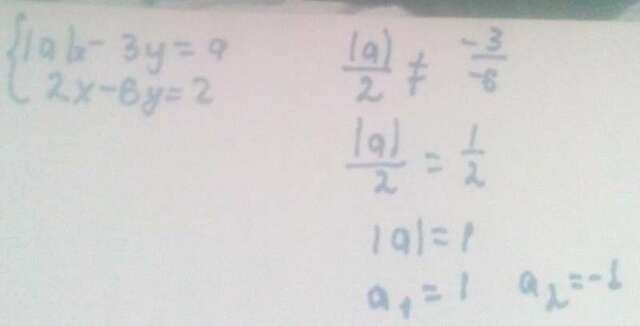 {|a|x - 3y = a
2x - 6y = 2
|a|/2 ≠ -3/-6
|a|/2 = 1/2
|a| = 1
a₁ = 1 a₂ = -1